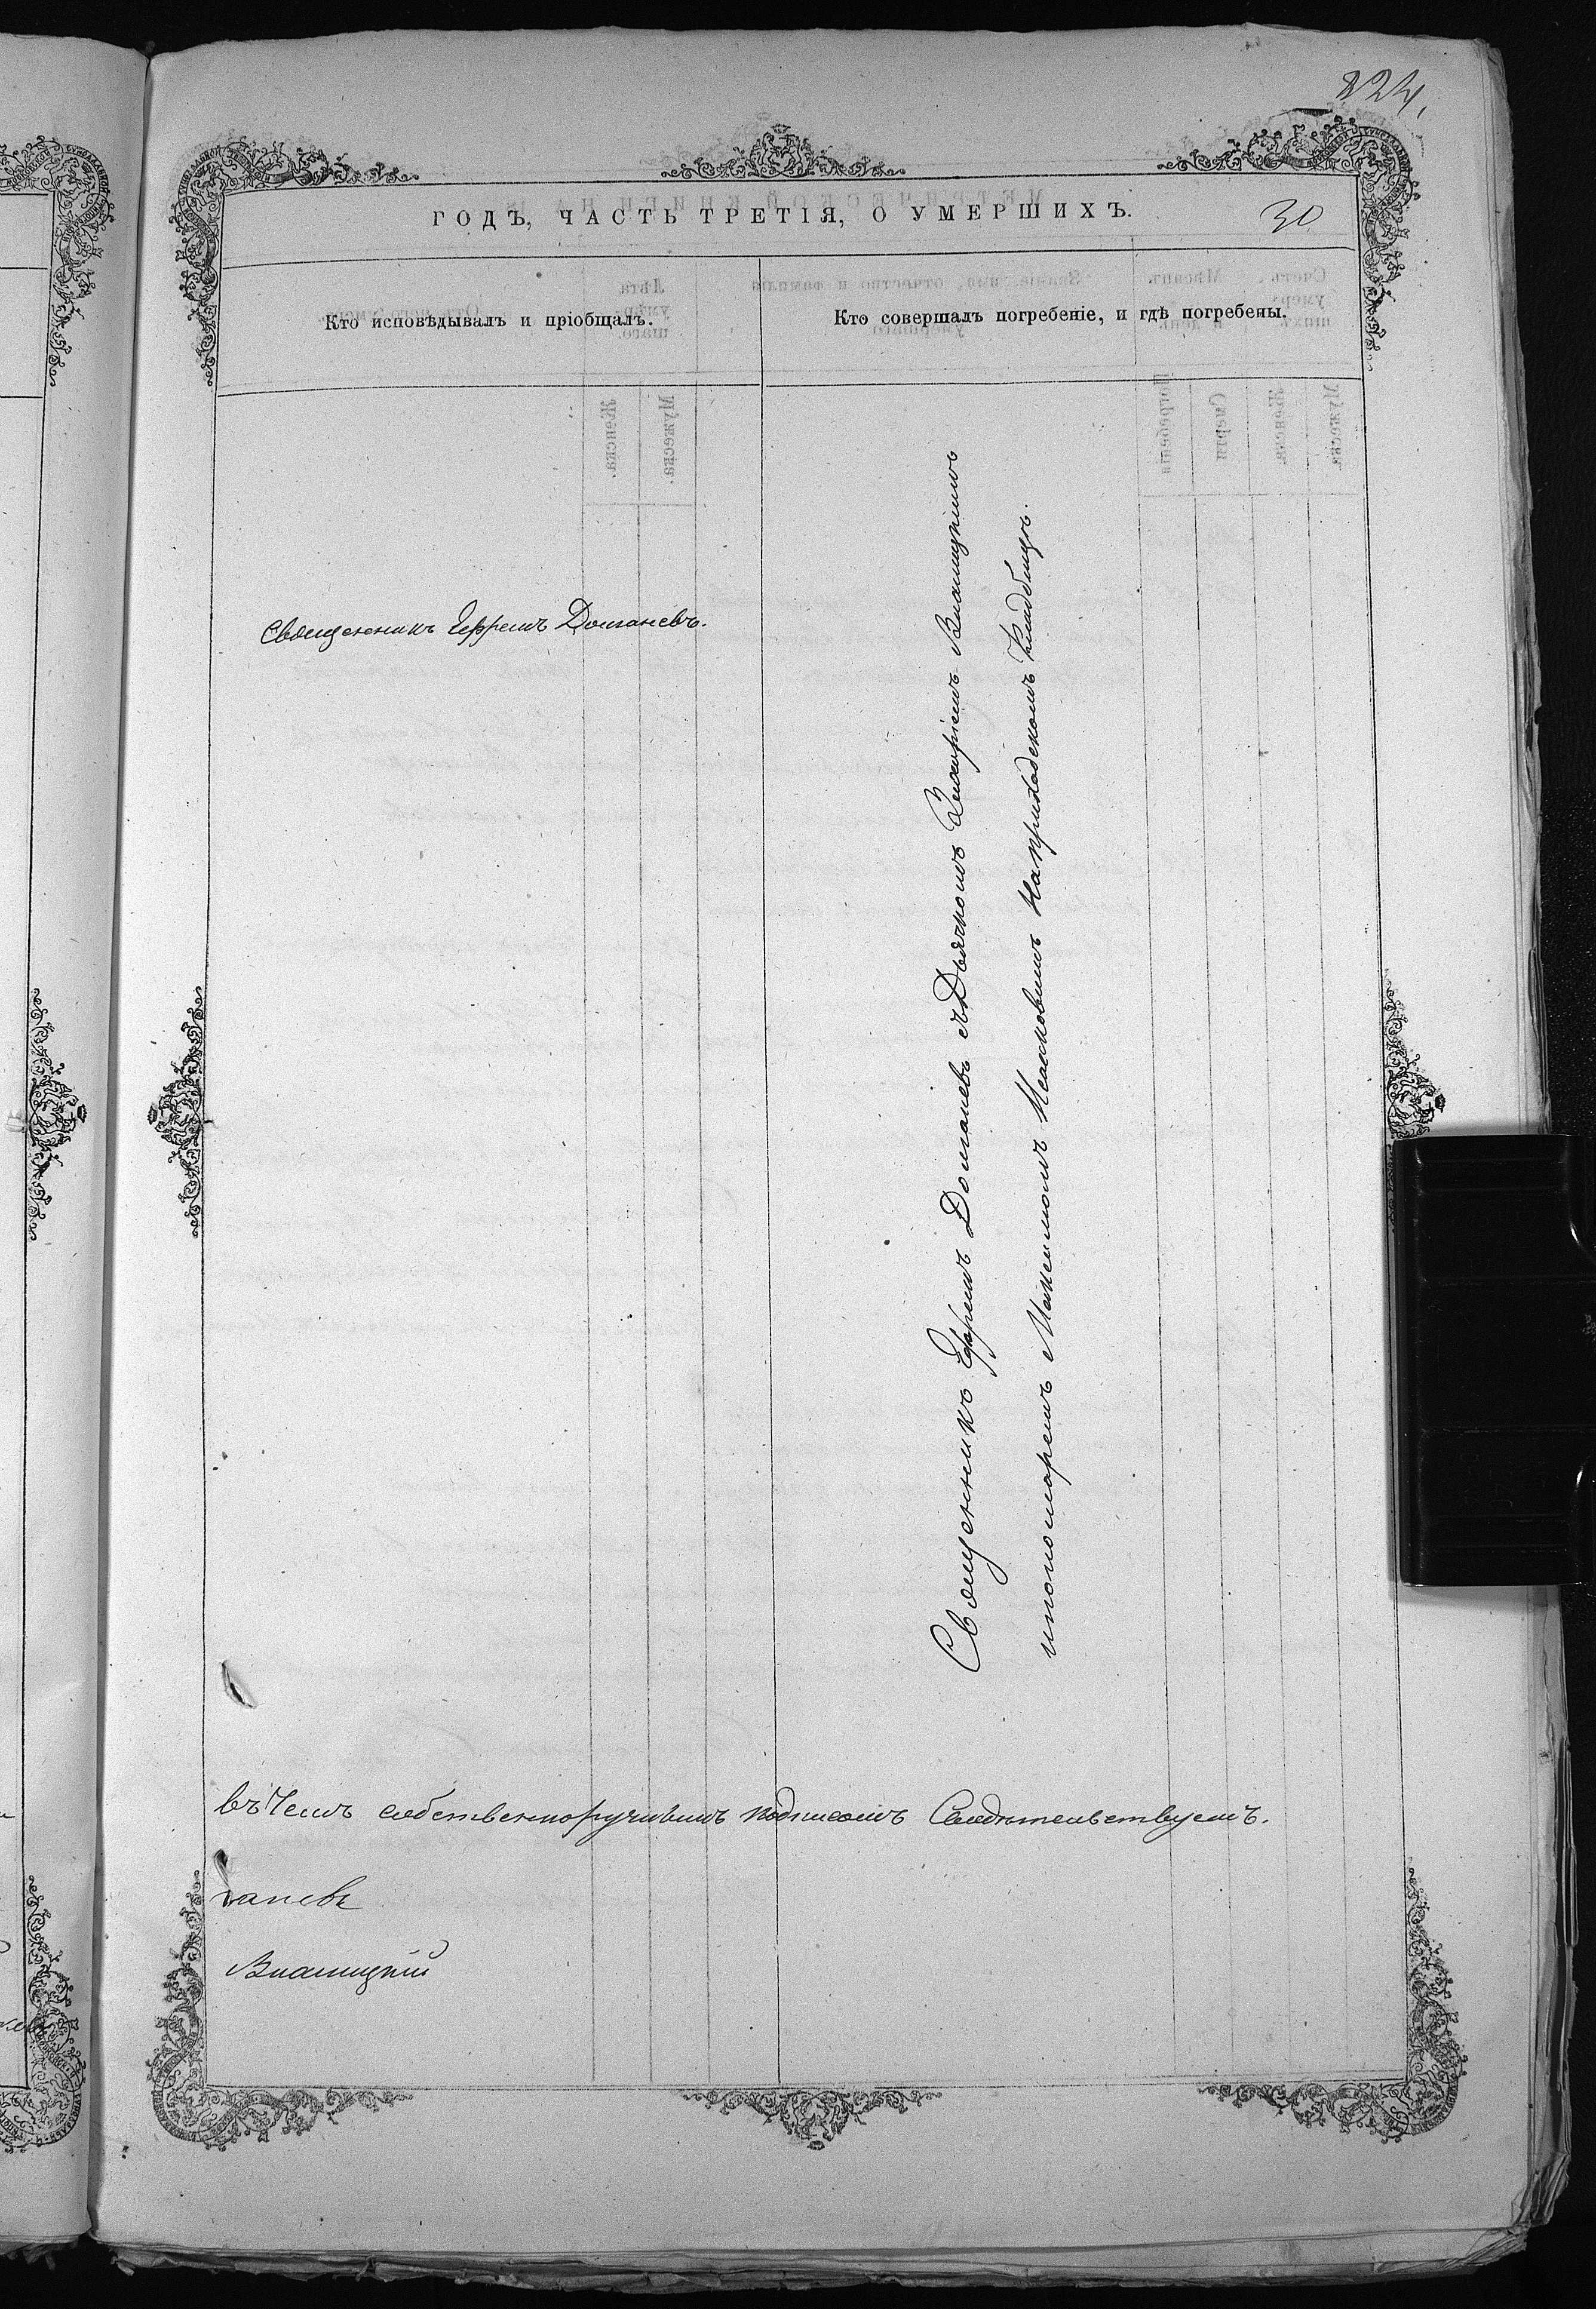 224.
ГОДЪ, ЧАСТЬ ТРЕТІЯ, О УМЕРШИХЪ.
30
Кто исповѣдывалъ и пріобщалъ.
Кто совершалъ погребеніе, и гдѣ погребены.
Священникъ Ефремъ Долганевъ.
Священникъ Ефремъ Долганевъ съ Дьячкомъ Григоріемъ
и пономаремъ Максимомъ На приходскомъ Кладбищѣ.
въ Чемъ собственноручнымъ подписомъ Свидѣтельствуемъ.
ганевъ